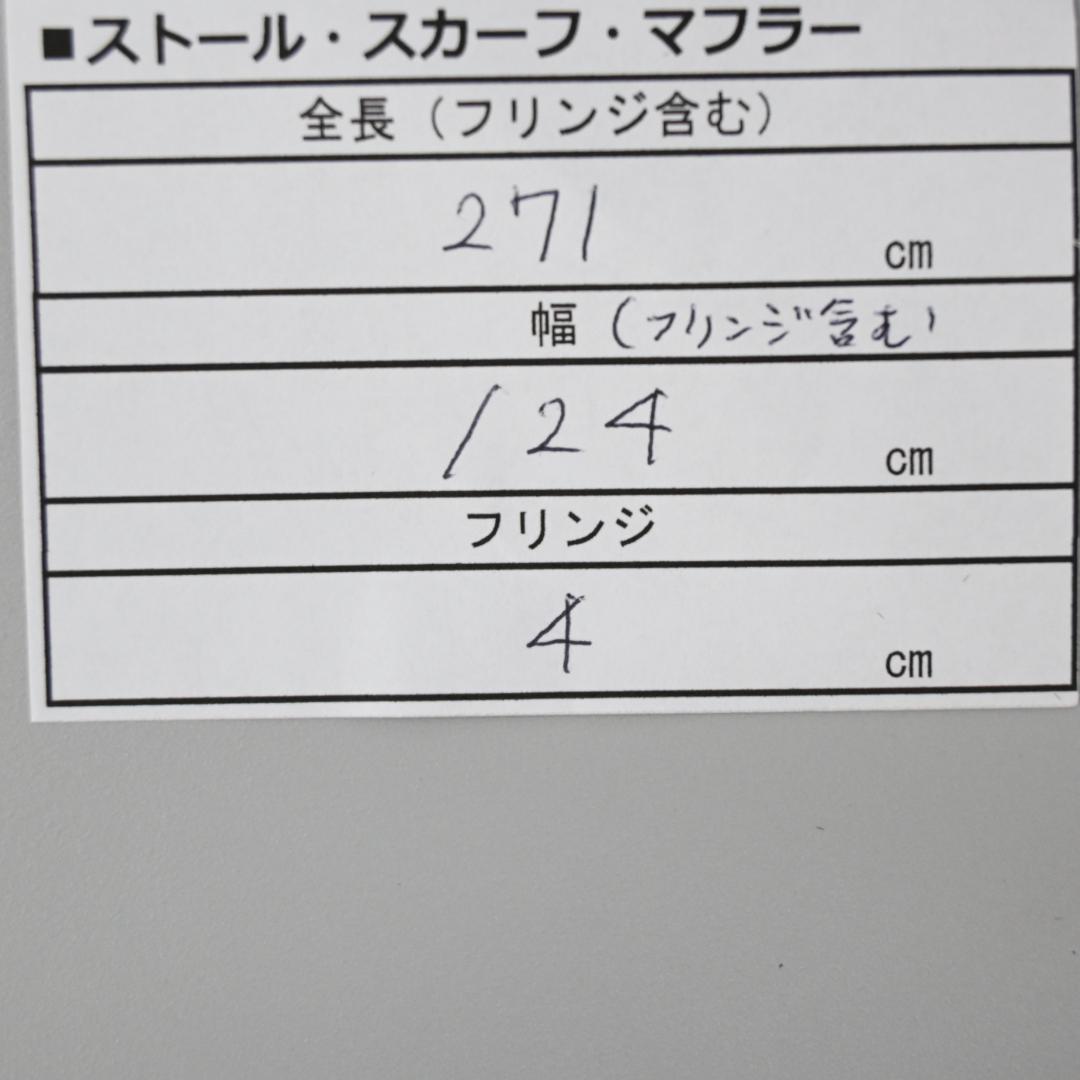 ■ストール・スカーフ・マフラー
全長（フリンジ含む）
271 cm
幅（フリンジ含む）
124 cm
フリンジ
4 cm